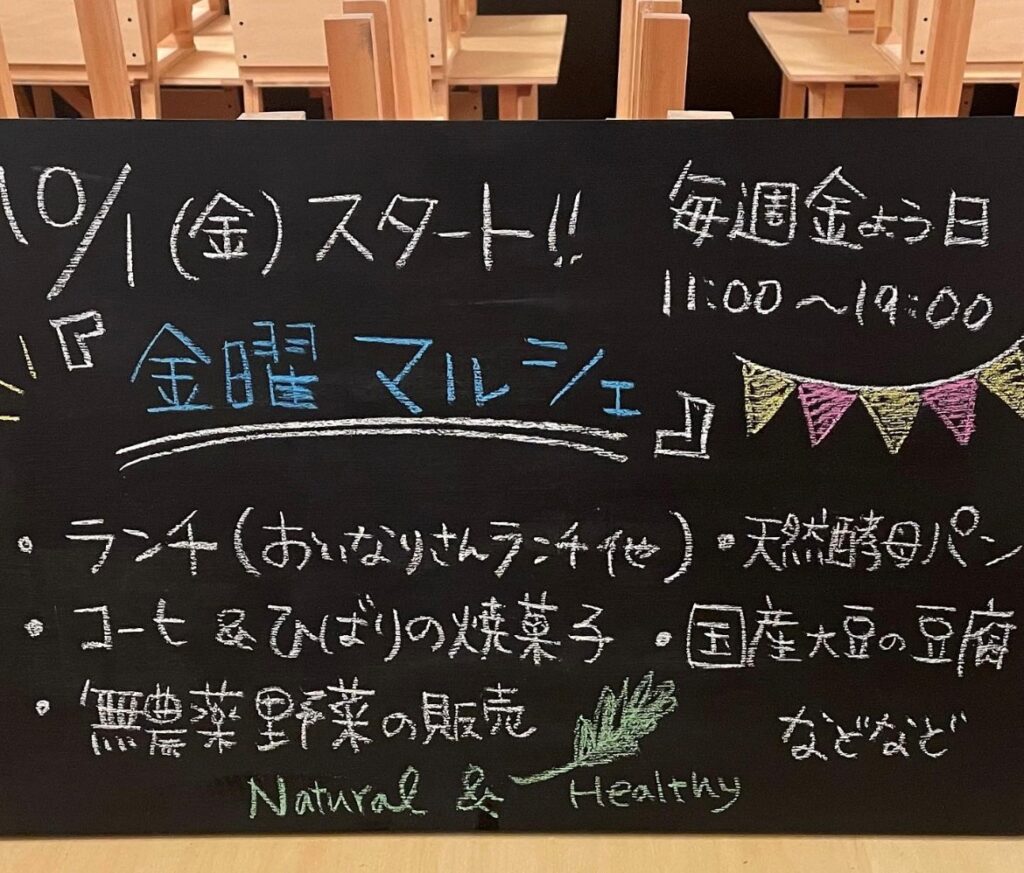 10/1(金)スタート!!
毎週金よう日
11:00〜19:00
『金曜マルシェ』
・ランチ(おいなりさんランチ他)
・天然酵母パン
・コーヒ&ひばりの焼菓子
・国産大豆の豆腐
・無農薬野菜の販売
などなど
Natural & Healthy